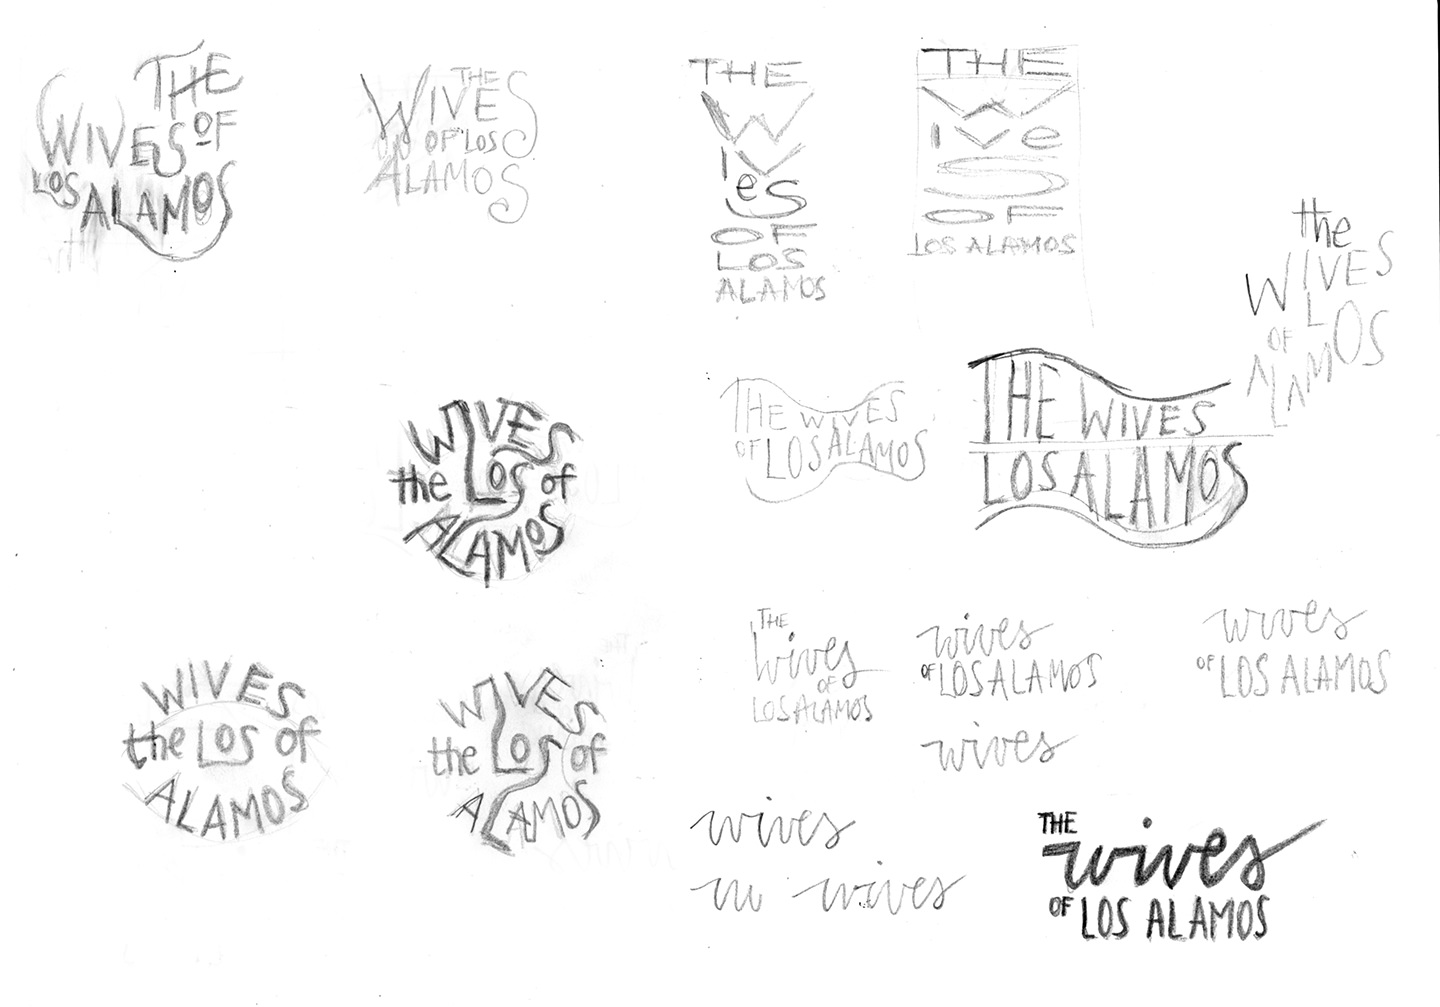 THE
WIVES OF
LOS ALAMOS
THE
WIVES
OF LOS
ALAMOS
THE
W
IV
es
OF
LOS
ALAMOS
THE
W
IVe
S
OF
LOS ALAMOS
the
WIVES
OF LOS
ALAMOS
WIVES
the Los of
ALAMOS
THE WIVES
OF LOS ALAMOS
THE WIVES
LOS ALAMOS
WIVES
the Los of
ALAMOS
WIVES
the Los of
ALAMOS
THE
wives
OF
LOS ALAMOS
wives
OF LOS ALAMOS
wives
wives
OF LOS ALAMOS
wives
wives
THE
wives
OF LOS ALAMOS